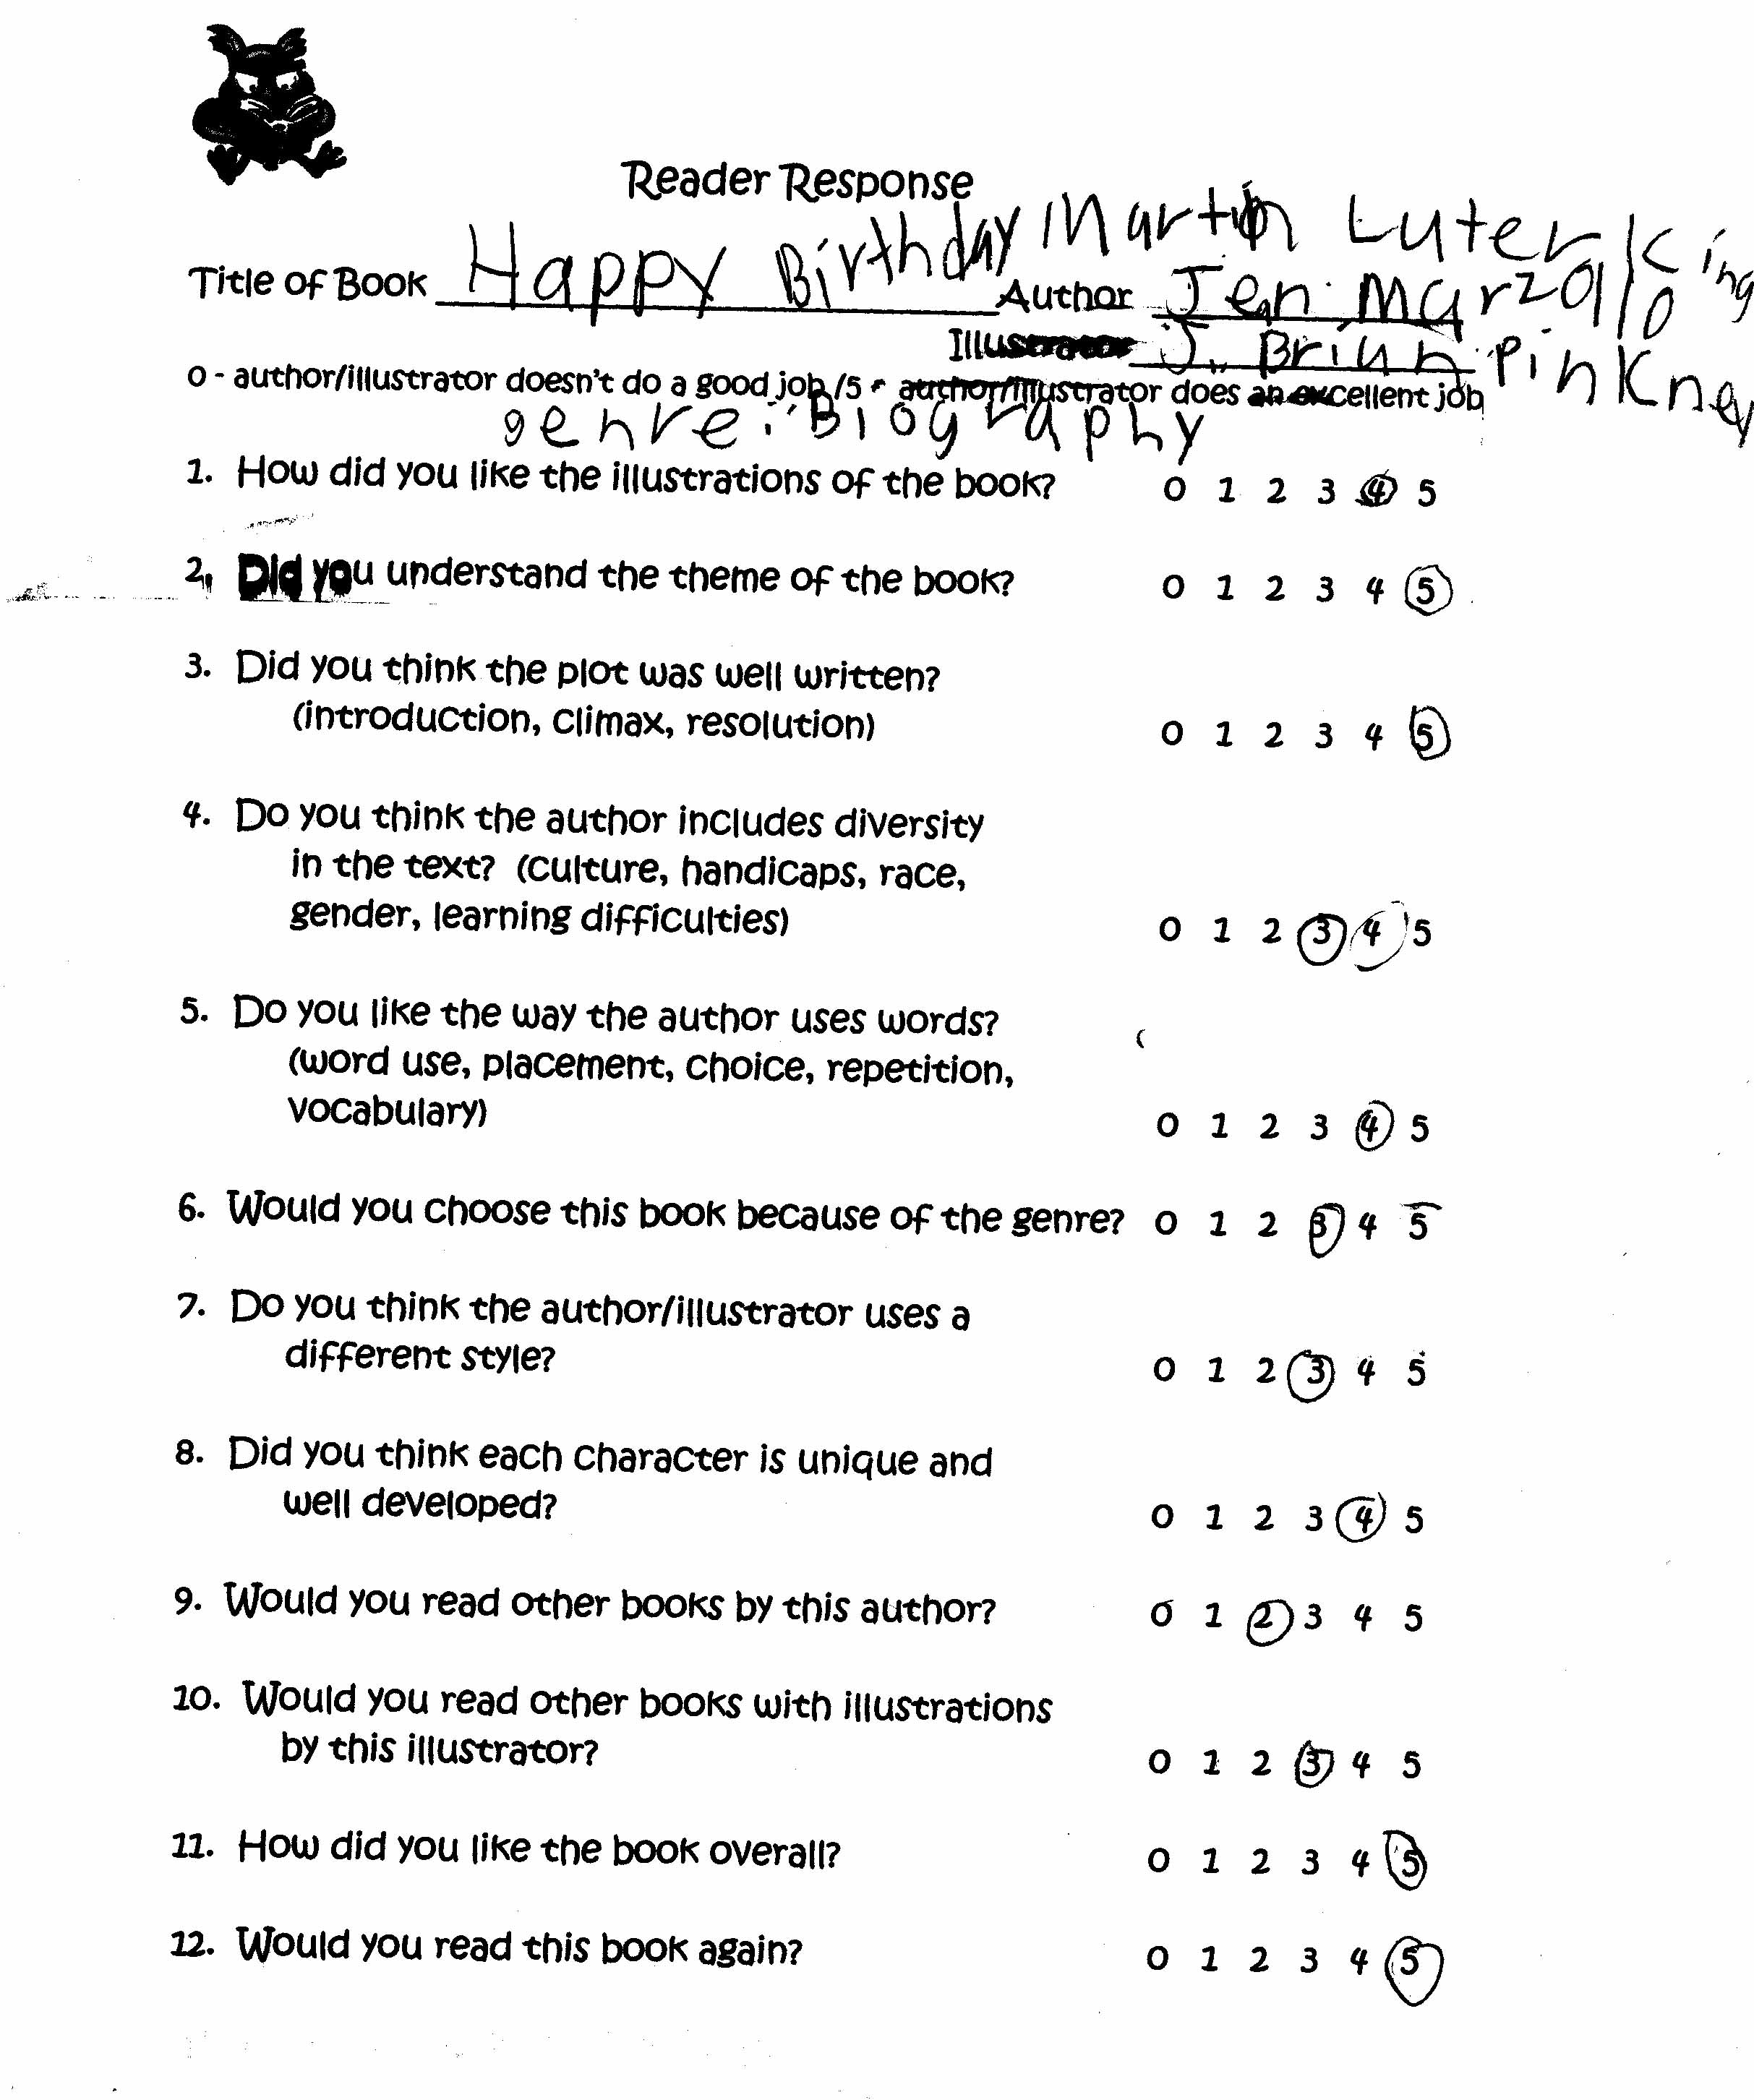 Reader Response
Title of Book Happy Birthday Martin Luter King
Author Jean Marzalo
Illustrator J. Brian Pinkney
0 - author/illustrator doesn't do a good job /5 - author/illustrator does an excellent job
genre: Biography
1. How did you like the illustrations of the book? 0 1 2 3 4 5
2. Did you understand the theme of the book? 0 1 2 3 4 5
3. Did you think the plot was well written?
(introduction, climax, resolution) 0 1 2 3 4 5
4. Do you think the author includes diversity
in the text? (culture, handicaps, race,
gender, learning difficulties) 0 1 2 3 4 5
5. Do you like the way the author uses words?
(word use, placement, choice, repetition,
vocabulary) 0 1 2 3 4 5
6. Would you choose this book because of the genre? 0 1 2 3 4 5
7. Do you think the author/illustrator uses a
different style? 0 1 2 3 4 5
8. Did you think each character is unique and
well developed? 0 1 2 3 4 5
9. Would you read other books by this author? 0 1 2 3 4 5
10. Would you read other books with illustrations
by this illustrator? 0 1 2 3 4 5
11. How did you like the book overall? 0 1 2 3 4 5
12. Would you read this book again? 0 1 2 3 4 5